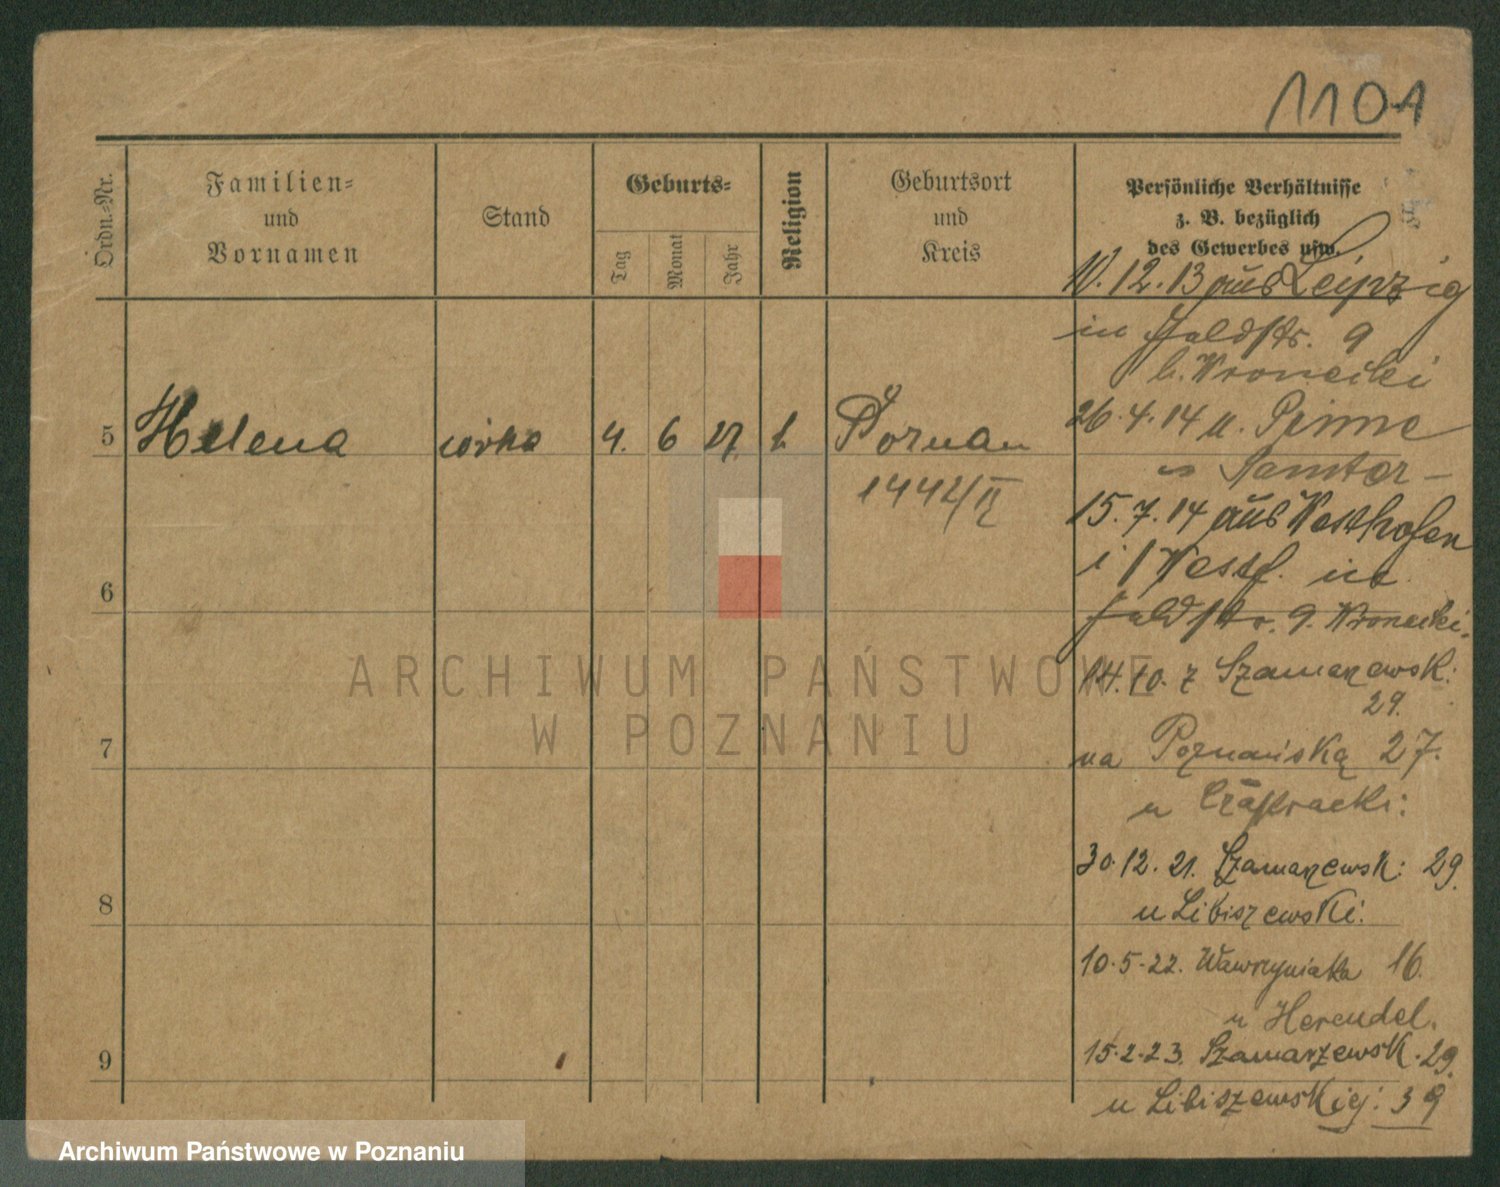 1101
Ordn.-Nr.
Familien-
und
Vornamen
Stand
Geburts-
Tag
Monat
Jahr
Religion
Geburtsort
und
Kreis
Persönliche Verhältnisse
z. B. bezüglich
des Gewerbes usw.
10. 12. 13 aus Leipzig
in Feldstr. 9
b. Wronecki
26. 4. 14 u. Pinne
Samter
15. 7. 14 aus Westhofen
i/Westf. in
Feldstr. 9. Wronecki.
14. 10. z Szamarzewsk:
29.
na Poznańską 27.
u
30. 12. 21. Szamarzewsk: 29.
u Libiszewski.
10. 5. 22. Wawrzyniaka 16.
u Herendel.
15. 2. 23. Szamarzewsk. 29.
u Libiszewskiej: 39
5 Helena córka 4. 6 17. k Poznań
1442/II
6
7
8
9
ARCHIWUM PAŃSTWOWE
W POZNANIU
Archiwum Państwowe w Poznaniu